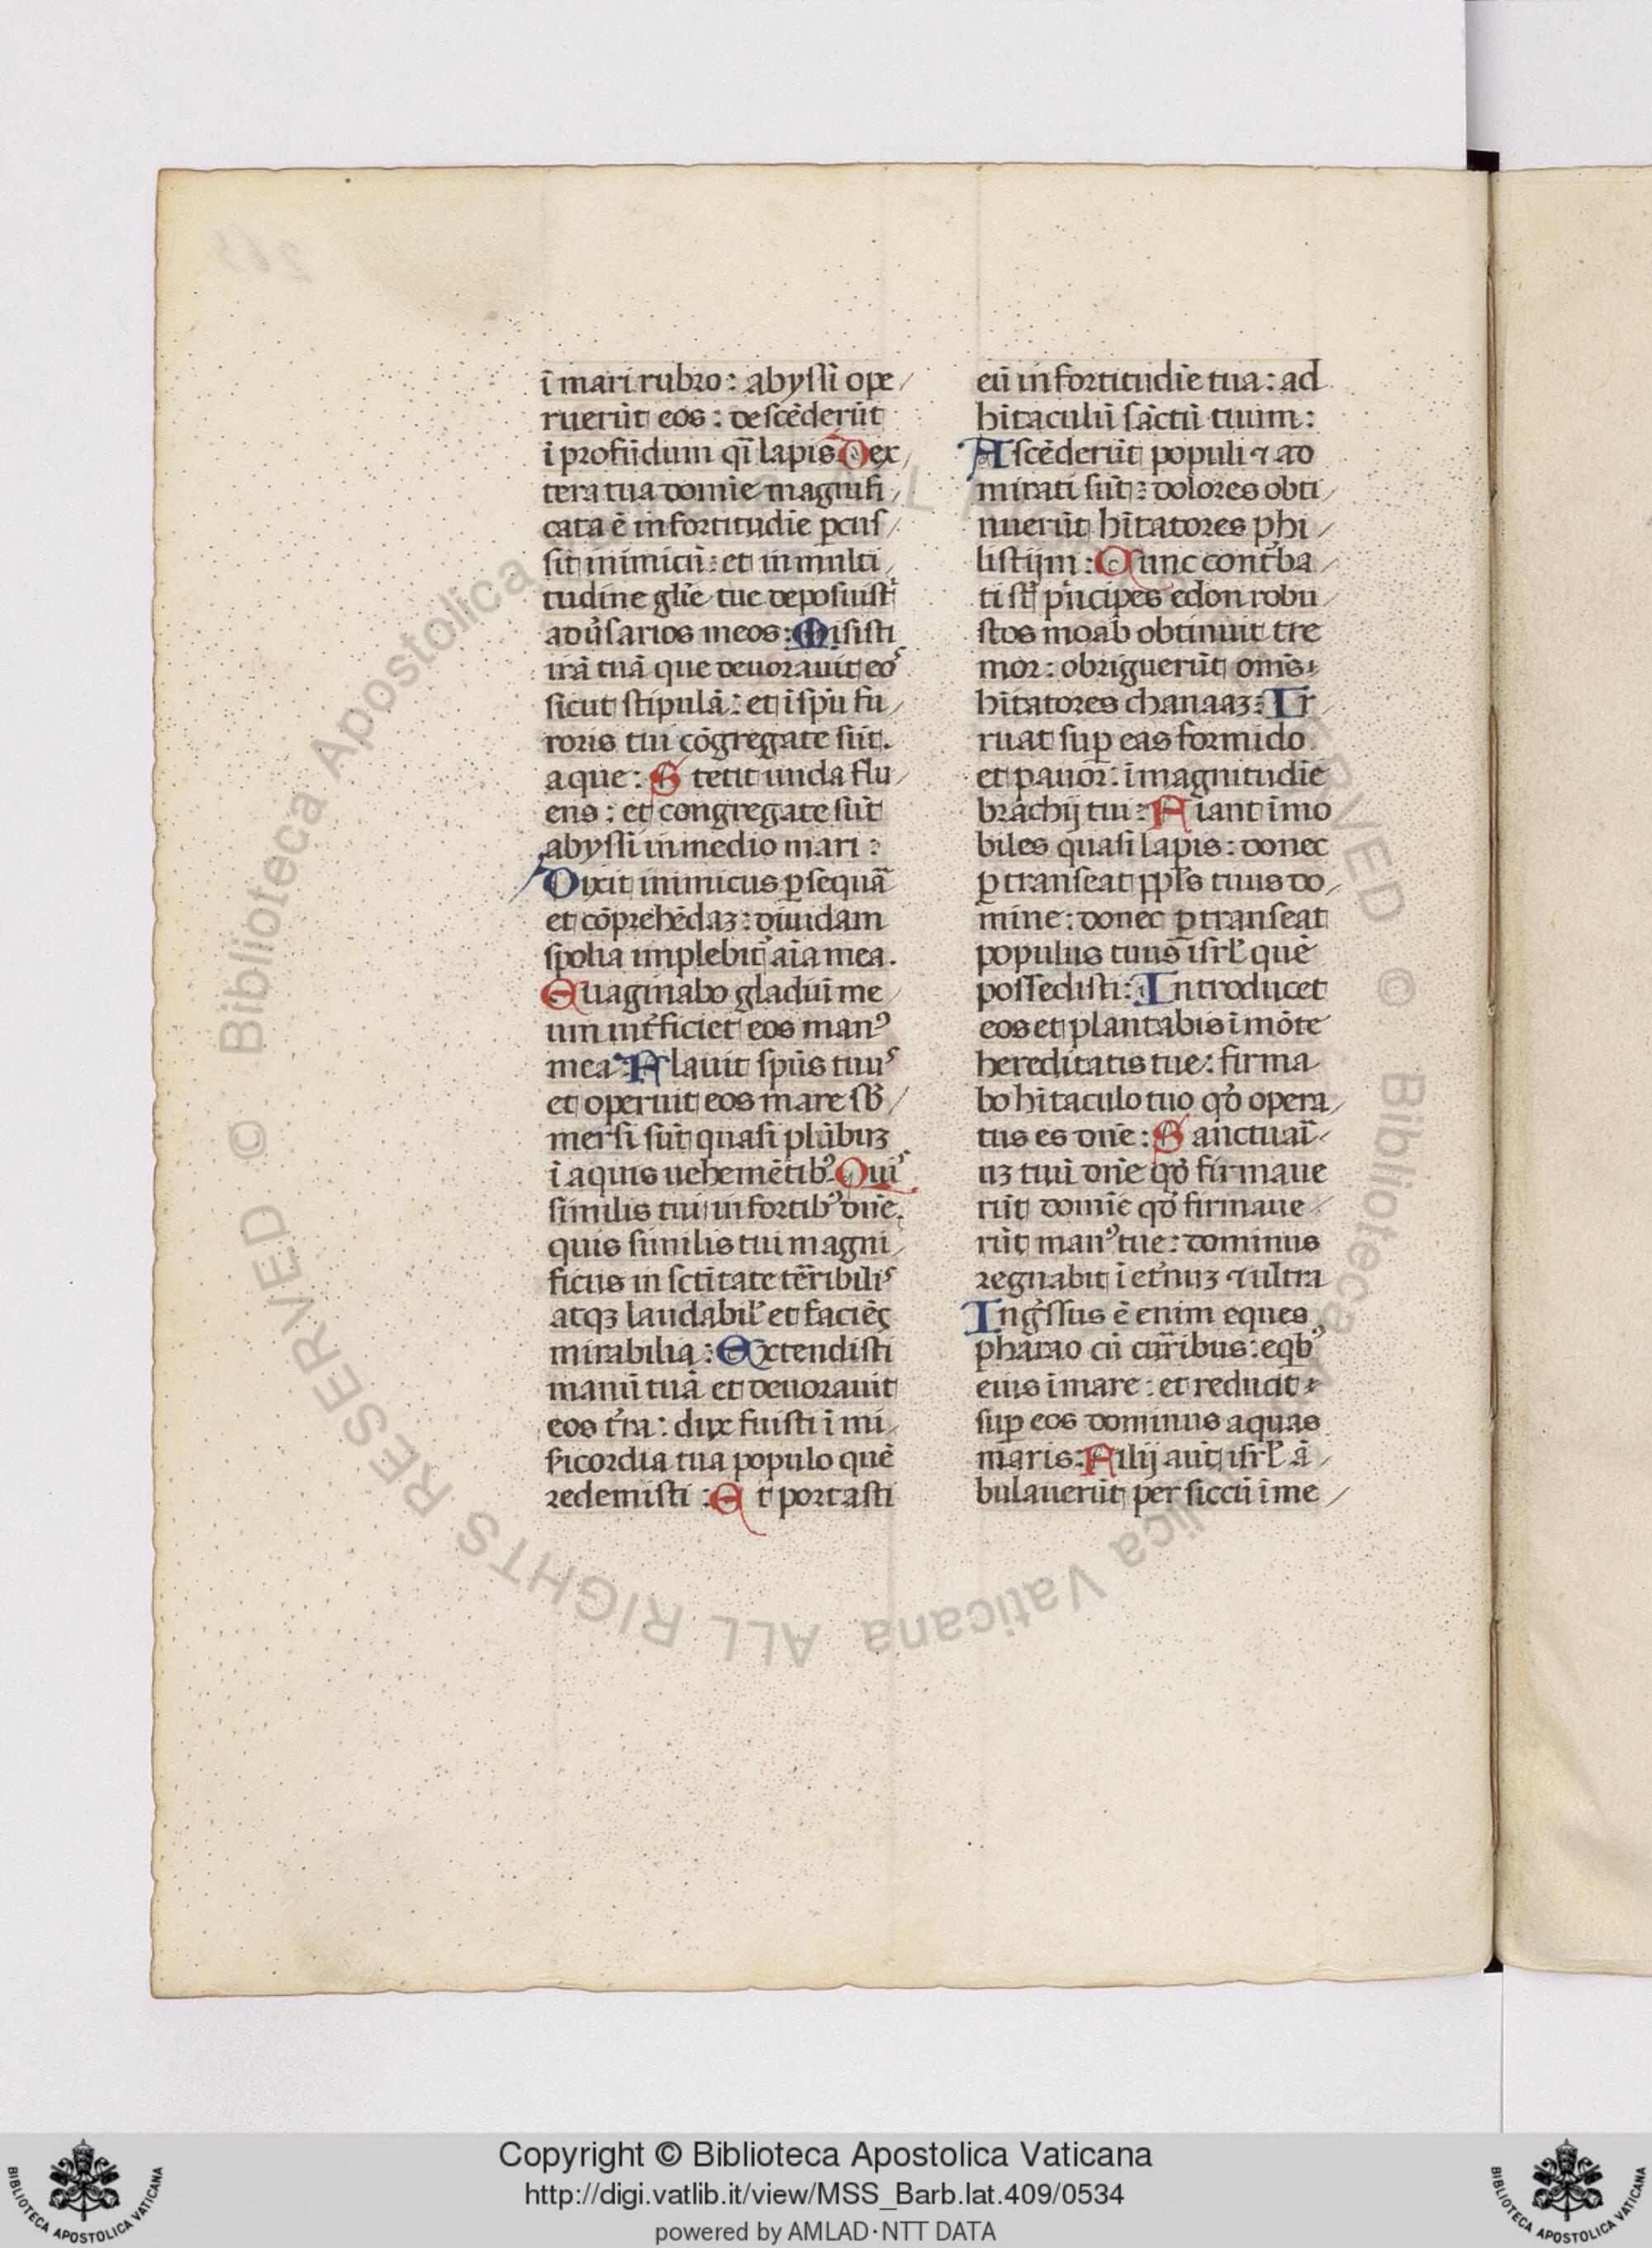 ī mari rubro : abyssi ope/
ruerūt eos : descēderūt
ī profūdum qī lapis. Dex/
tera tua domīe magnifi/
cata ē in fortitudīe ꝑcus/
sit inimicū : et in multi/
tudine glīe tue deposuisti
adùsarios meos : Misisti
irā tuā que deuorauit eos
sicut stipulā : et ī spū fu/
roris tui cōgregate sūt.
aque : Stetit unda flu/
ens : et congregate sūt
abyssi in medio mari :
Dixit inimicus ꝑsequā
et cōprehēdaz : diuidam
spolia implebit᷑ aīa mea.
Euaginabo gladiuī me/
um int᷑ficiet eos manꝰ
mea : Flauit spūs tuus
et operuit eos mare sb᷑/
mersi sūt quasi plūbuz
ī aquis uehemētibꝰ. Quis
similis tui in fortibꝰ dn̄e.
quis similis tui magni/
ficus in sctītate tēribilis
atqꝫ laudabil᷑ et faciēs
mirabilia : Extendisti
manū tuā et deuorauit
eos t᷑ra : dux fuisti ī mi/
s᷑icordia tua populo quē
redemisti : Et portasti
eū in fortitudīe tua : ad
hītaculū sāctū tuum :
Ascēderūt populi ⁊ ad
mirati sūt : dolores obti/
nuerūt hītatores phi/
listijm : Tunc cont᷑ba/
ti st̄ pncipes edon robu/
stos moab obtinuit tre
mor : obriguerūt omīs
hītatores chanaaz : Ir
ruat suꝑ eas formido
et pauor : ī magnitudīe
brachij tui : Fiant īmo
biles quasi lapis : donec
ꝑtranseat ppl̄s tuus do/
mine : donec ꝑtranseat
populus tuus isrl̄ quē
possedisti : Introducet
eos et plantabis ī mōte
hereditatis tue : firma
bo hītaculo tuo qď opera/
tus es dn̄e : Sanctuarī/
uz tuū dn̄e qď firmaue
rūt domīe qď firmaue/
rūt manꝰ tue : dominus
regnabit ī et᷑nuz ⁊ ultra
Ing᷑ssus ē enim eques
pharao cū cur̄ribus : eqbꝰ
eius ī mare : et reducit
suꝑ eos dominus aquas
maris : Filij aut̄ isrl̄ ā/
bulauerūt per siccū ī me/
Copyright © Biblioteca Apostolica Vaticana
http://digi.vatlib.it/view/MSS_Barb.lat.409/0534
powered by AMLAD·NTT DATA